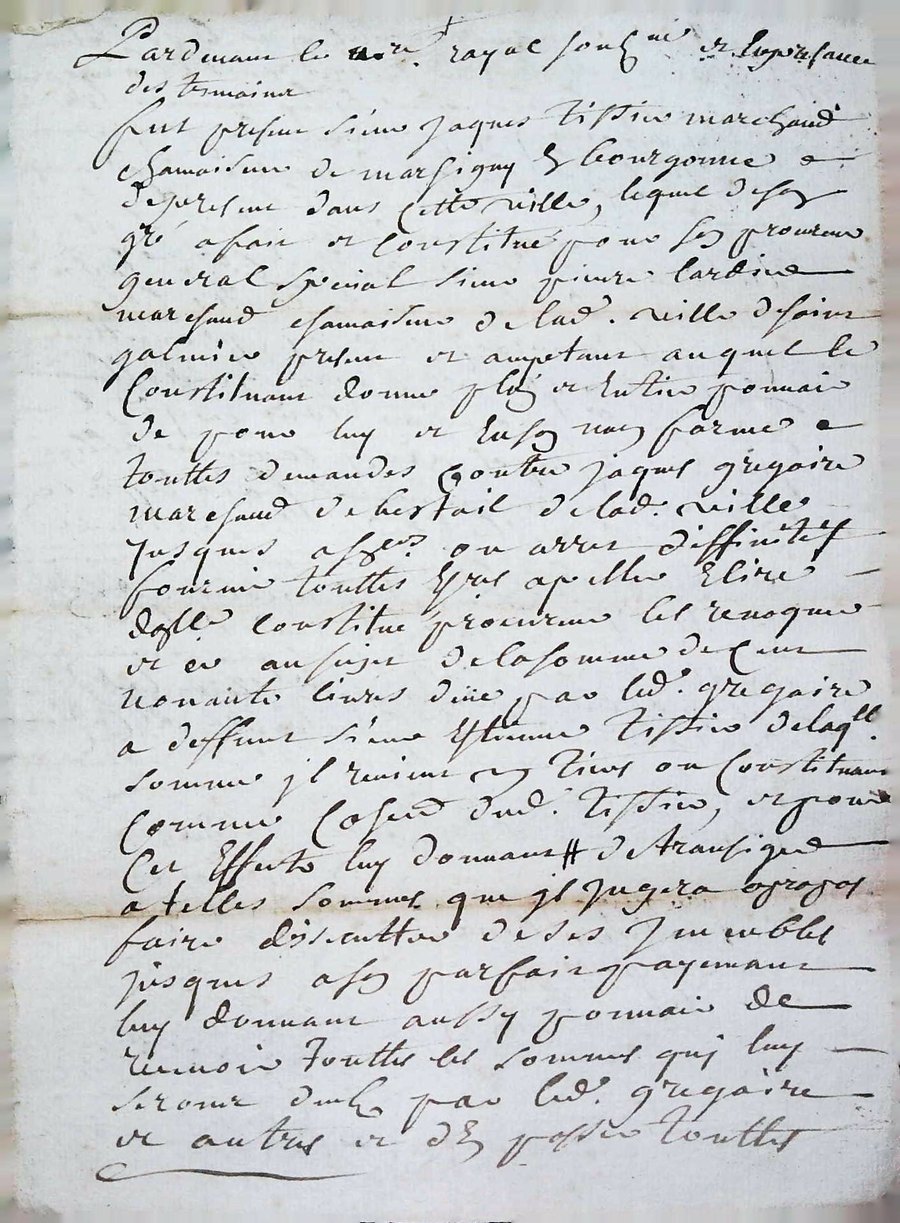 Pardevant le no.re royal soub.né et en presance
des temoins
fut present sieur jaques Tissier marchand
chamoiseur de marsigny en bourgonne
de present dans cette ville, lequel de son
gré a fait et constitué pour son procureur
general special sieur pierre lardier
marchand chamoiseur de lad. ville de saint
galmier present et aceptant auquel le
constituant donne plein et entier pouvoir
de pour luy et en son nom former
touttes demandes contre jaques gregoire
marchand de bestail de lad. ville
jusques a ou arret diffinitif
fournir touttes apeller Elire
constitue procureur les revoquer
et ce au sujet de la somme de cent
nonante livres düe par led. gregoire
a deffunt sieur Estienne Tissier de laq.lle
somme jl revient un tiers au constituant
comme dud. Tissier, et pour
cet Effects luy donnant # de transiger
a telles sommes que jl jugera apropos
faire discutter de ses Immeubles
jusques a son parfait payemant
luy donnant aussy pouvoir de
recevoir touttes les sommes quj luy
seront par led. gregoire
et autres et d'en passer touttes